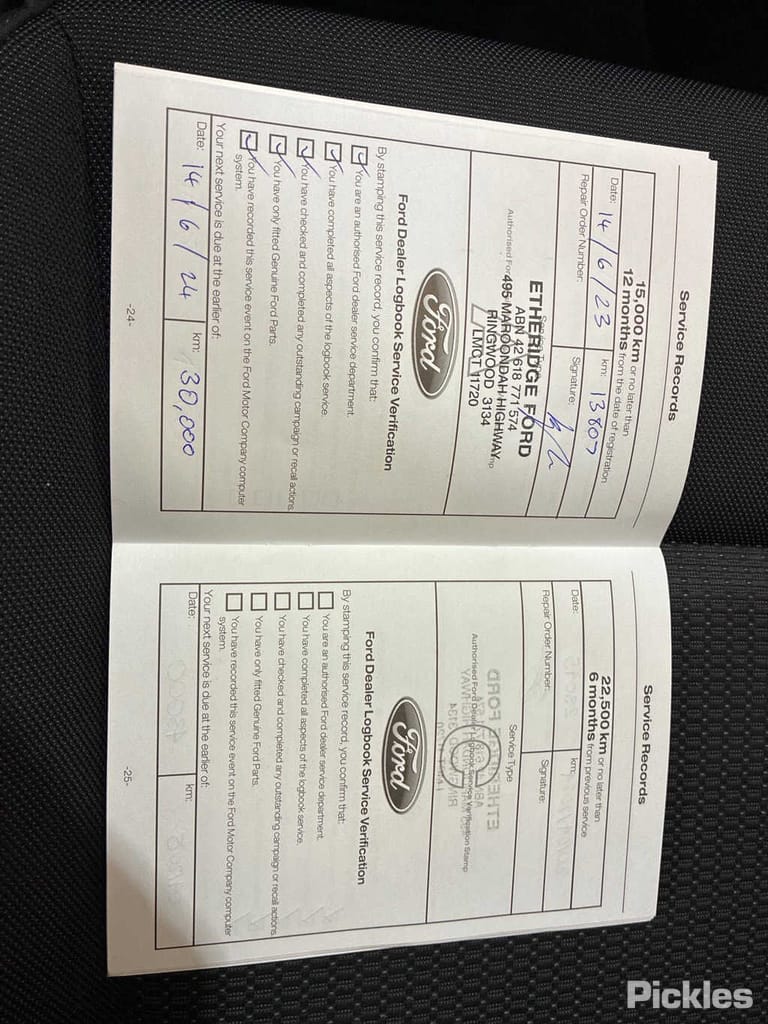 Service Records
15,000 km or no later than
12 months from the date of registration
Date: 14/6/23 km: 13807
Repair Order Number: Signature:
ETHERIDGE FORD
ABN 42 618 771 574
Authorised For 495 MAROONDAH HIGHWAY mp
RINGWOOD 3134
LMCT 11720
Ford
Ford Dealer Logbook Service Verification
By stamping this service record, you confirm that:
You are an authorised Ford dealer service department.
You have completed all aspects of the logbook service.
You have checked and completed any outstanding campaign or recall actions.
You have only fitted Genuine Ford Parts.
You have recorded this service event on the Ford Motor Company computer
system.
Your next service is due at the earlier of:
Date: 14/6/24 km: 30,000
-24-
Service Records
22,500 km or no later than
6 months from previous service
Date: km:
Repair Order Number: Signature:
Service Type
Authorised Ford Dealer Logbook Service Verification Stamp
Ford
Ford Dealer Logbook Service Verification
By stamping this service record, you confirm that:
You are an authorised Ford dealer service department.
You have completed all aspects of the logbook service.
You have checked and completed any outstanding campaign or recall actions.
You have only fitted Genuine Ford Parts.
You have recorded this service event on the Ford Motor Company computer
system.
Your next service is due at the earlier of:
Date: km:
-25-
Pickles